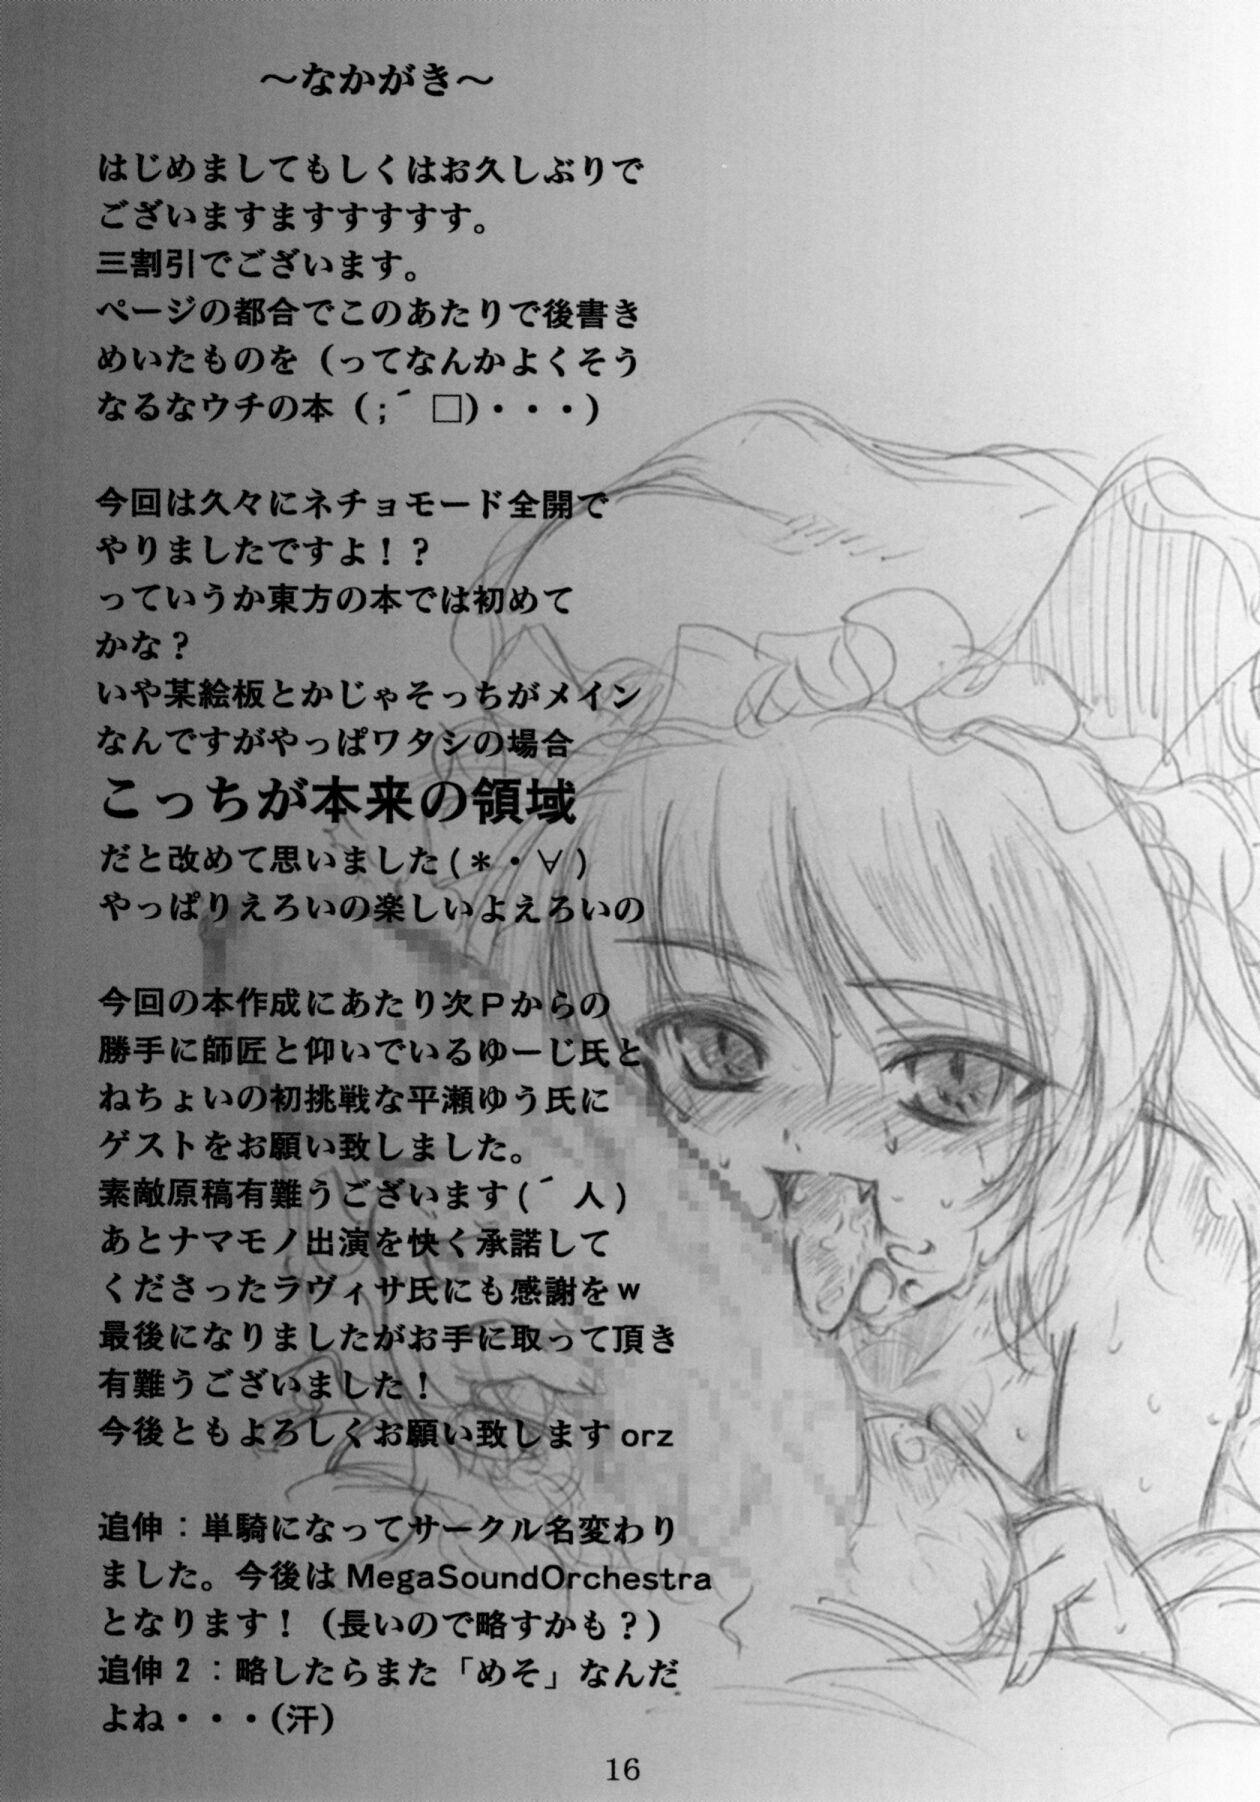 ～なかがき～
はじめましてもしくはお久しぶりで
ございますますすすすす。
三割引でございます。
ページの都合でこのあたりで後書き
めいたものを（ってなんかよくそう
なるなウチの本（；´□)・・・）
今回は久々にネチョモード全開で
やりましたですよ！？
っていうか東方の本では初めて
かな？
いや某絵板とかじゃそっちがメイン
なんですがやっぱワタシの場合
こっちが本来の領域
だと改めて思いました(＊・∀)
やっぱりえろいの楽しいよえろいの
今回の本作成にあたり次Ｐからの
勝手に師匠と仰いでいるゆーじ氏と
ねちょいの初挑戦な平瀬ゆう氏に
ゲストをお願い致しました。
素敵原稿有難うございます(´人)
あとナマモノ出演を快く承諾して
くださったラヴィサ氏にも感謝をｗ
最後になりましたがお手に取って頂き
有難うございました！
今後ともよろしくお願い致します orz
追伸：単騎になってサークル名変わり
ました。今後は MegaSoundOrchestra
となります！（長いので略すかも？）
追伸２：略したらまた「めそ」なんだ
よね・・・(汗)
16